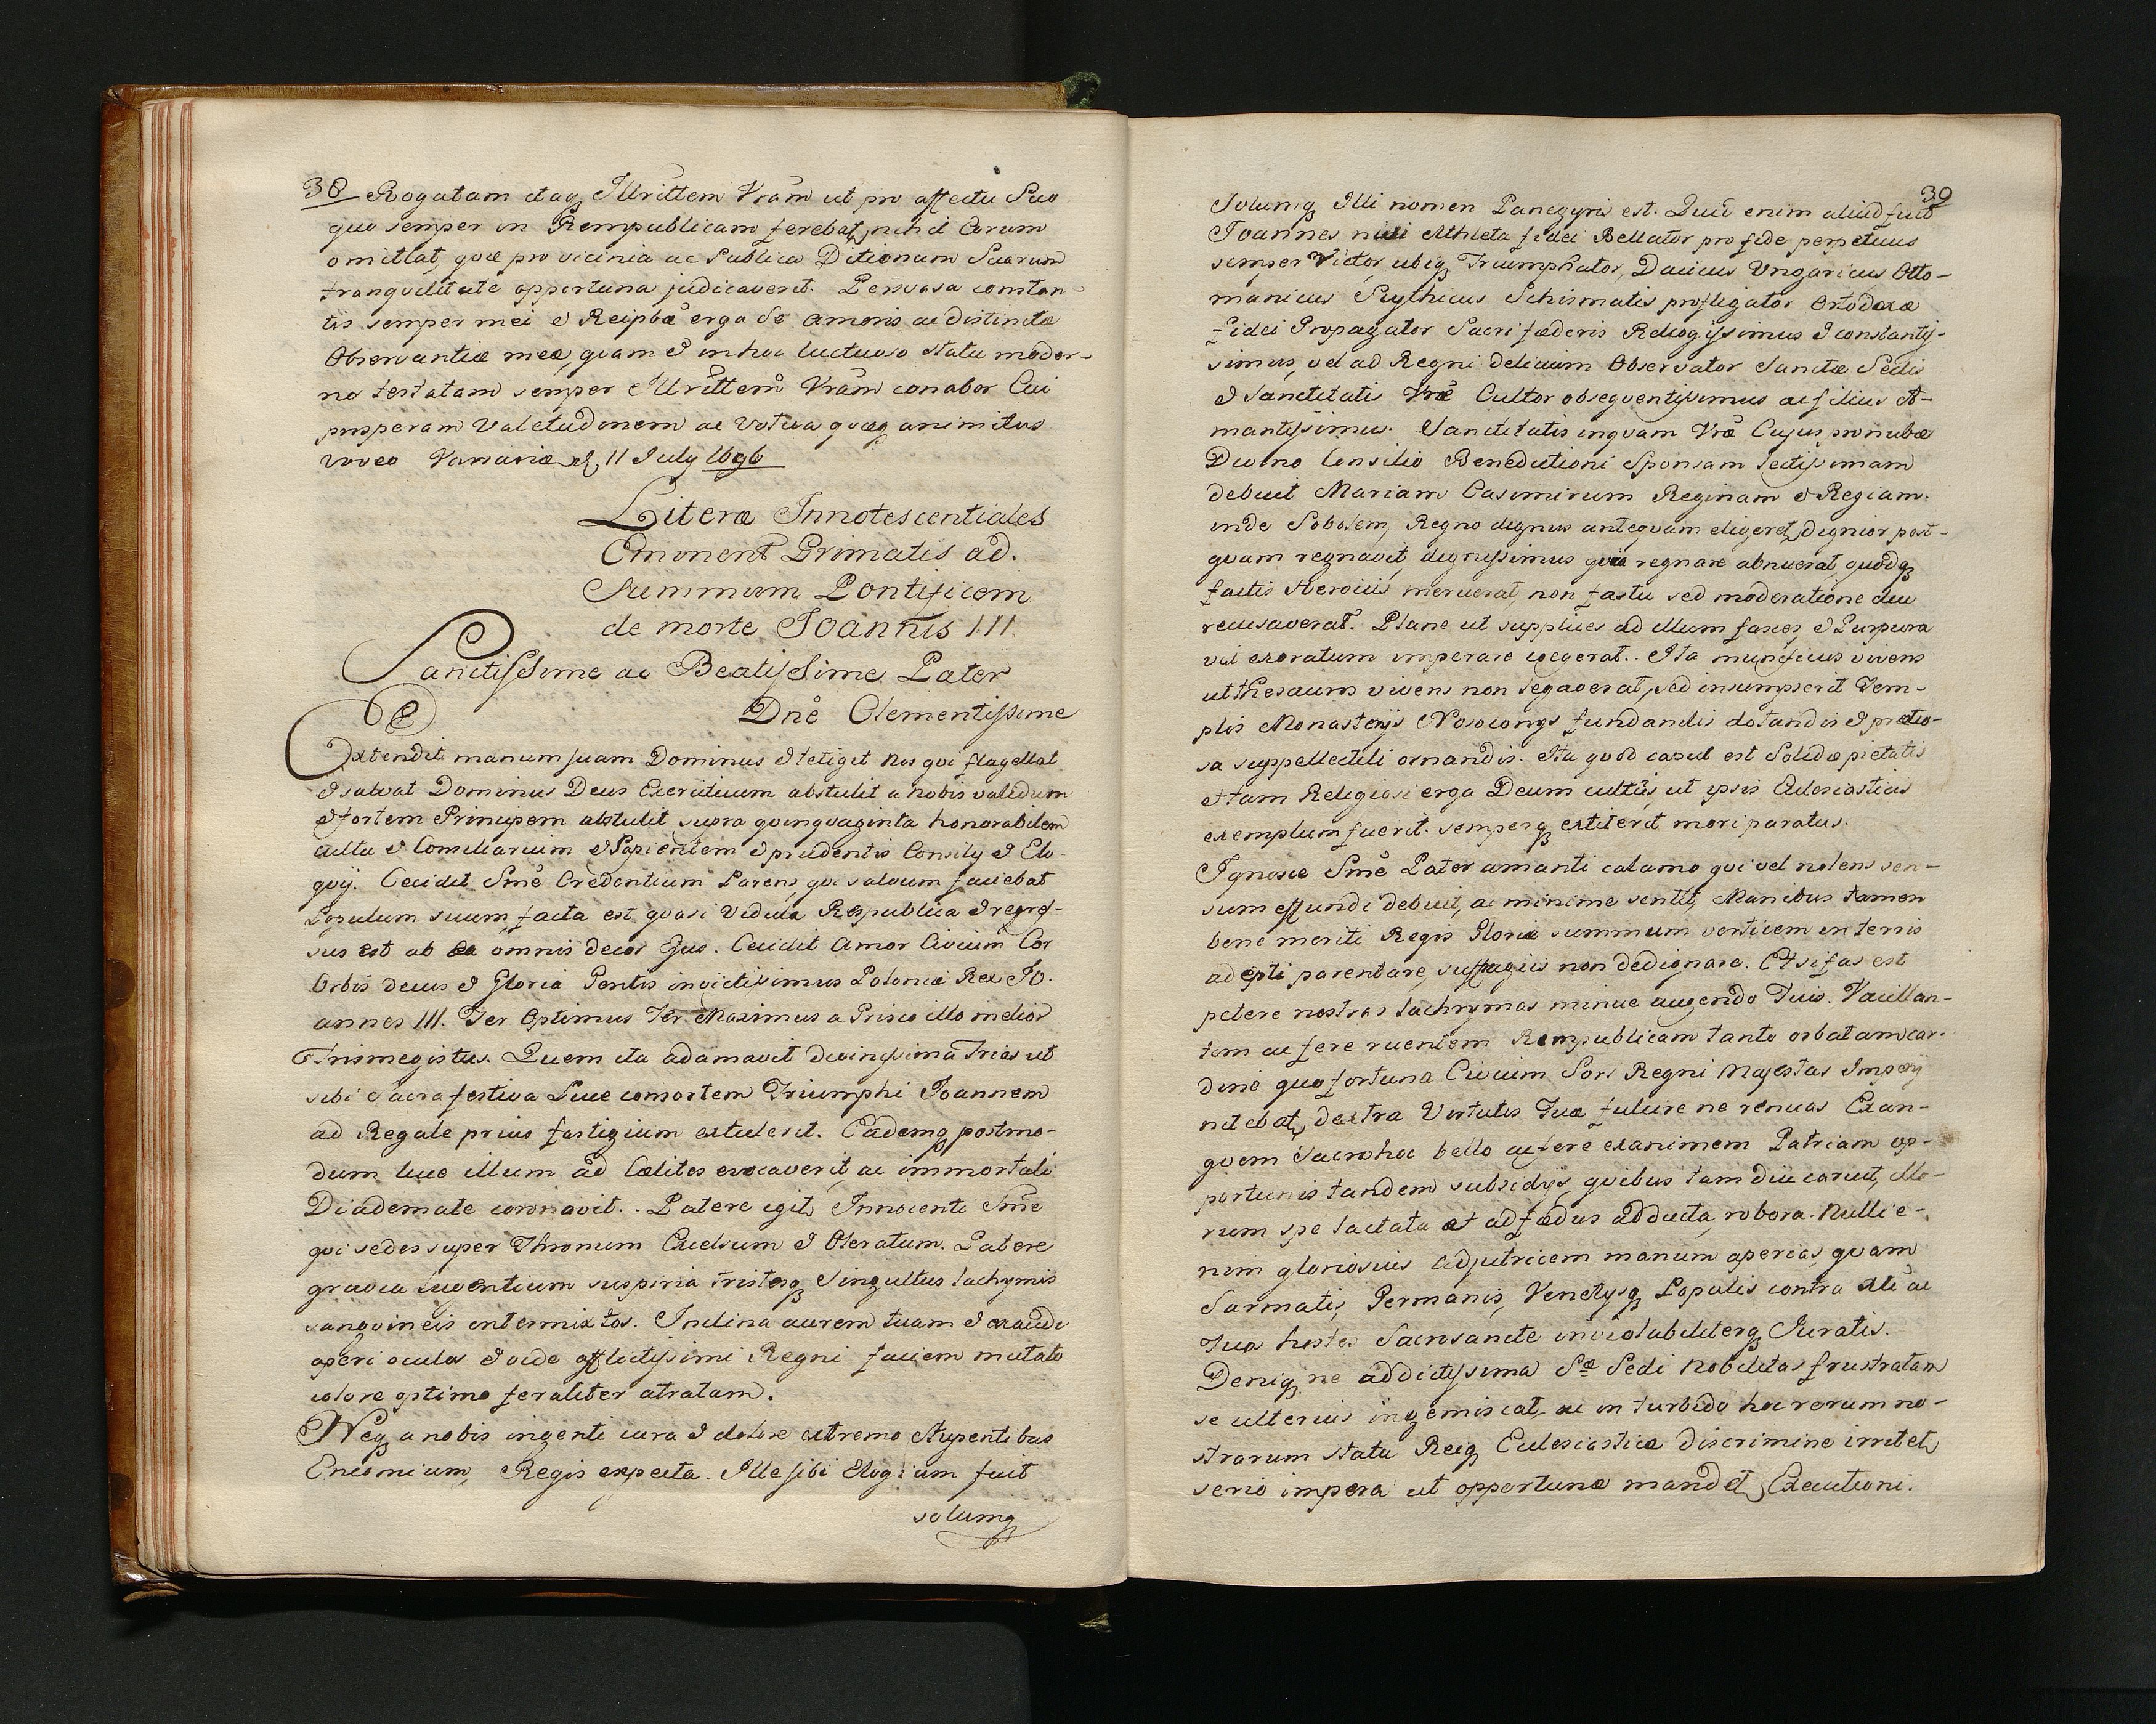 38 Rogatam itaq Illrittem Vram ut pro affectu Suo
quo semper in Rempublicam ferebat, nihil Eorum
omittat, quæ pro vicinia ac Publica Ditionum Suarum
tranqvilitate opportuna judicaverit. Persvasa constan-
tis semper mei & Reipbæ erga Se amoris ac distinctæ
Observantiæ meæ, qvam & in hoc luctuoso statu moder-
no testatam semper Illrittem Vram conabor Cui
prosperam Valetudinem ac Votiva qvæq animitus
voveo Varsaviæ d, 11 July 1696
Literæ Innotescentiales
Eminent Primatis ad.
Summum Pontificem
de morte Joannis III.
Sanctissime ac Beatissime Pater
Dne Clementissime
Extendit manum suam Dominus & tetigit Nos qvi flagellat
& salvat Dominus Deus Exercituum abstulit a nobis validum
& fortem Principem abstulit supra qvinqvaginta honorabilem
cultu & Consiliarium & Sapientem & prudentis Consily & Elo-
qvy. Cecidit Sme Credentium Parens, qvi salvum faciebat
Populum suum, facta est qvasi Vidula Respublica & regres-
sus est ab ea omnis decor Ejus. Cecidit Amor Civium Cor
Orbis decus & Gloria Gentis invictissimus Poloniæ Rex Jo-
annes III. Ter Optimus Ter Maximus a Prisco illo melior
Trismegistus. Quem ita adamavit divinissima Trias ut
sibi sacra festiva Luce consortem Triumphi Joannem
ad Regale prius fastigium extulerit. Eademq postmo-
dum luce illum ad Cælites evocaverit, ac immortali
Diademate coronavit. Patere igit, Innocenti Sme
qvi sedes super Thronum Excelsum & Elevatum. Patere
gravia lugentium suspiria tristesq Singultus lachrymis
sanqvineis intermixtos. Inclina aurem tuam & exaudi
aperi oculos & vide afflictissimi Regni faciem mutato
colore optimo feraliter atratam.
Neq a nobis ingenti cura & dolore extremo stupentibus
Encomium, Regis expecta. Ille sibi Elogium fuit
solumq
39
Solumq Illi nomen Panegyris est. Quid enim aliud fuit
Joannes nisi Athleta fidei Bellator pro fide perpetuus
semper Victor, ubiq Triumphator, Dacicus Ungaricus, Otto-
manicus Scythicus Schismatis profligator Ortodoxæ
Fidei Propagator Sacri fæderis Religiosissimus & constantis-
simus, vel ad Regni delicium Observator Sanctæ Sedis
& Sanctitatis Vræ Cultor obseqventissimus ac filius A-
mantissimus. Sanctitatis inqvam Vræ Cujus pronubæ
Divino Consilio Benedictioni Sponsam lectissimam
debuit Mariam Casimiram Reginam & Regiam.
inde Sobolem, Regno dignus anteqvam eligeret, dignior post-
qvam regnavit, dignissimus qvia regnare abnuerat, quodq
factis Heroicis meruerat, non fastu sed moderatione diu
recusaverat. Plane ut supplices ad illum fasces, & Purpura
vix exoratum imperare coegerat. Ita munificus vivens
ut thesauros vivens non legaverat, sed insumpserit Tem-
plis Monasterys Nosocomys fundandis dotandis & pretio-
sa suppellectili ornandis. Ita qvod caput est Solidæ pietatis
et tam Religiosi erga Deum cultûs, ut ipsis Ecclesiasticis
exemplum fuerit. semperq extiterit mori paratus.
Ignosce Sme Pater amanti calamo qvi vel nolens sen-
sum effundi debuit, ac minime sentit, Manibus tamen
bene meriti Regis Gloriæ summum verticem in terris
adepti parentare, suffragiis non dedignare. Et si fas est
petere nostras lachrymas minue augendo Tuis. Vacillan-
tem ac fere ruentem Rempublicam tanto orbatam car-
dine quo fortuna Civium Sors Regni Majestas Impery
nitebat, dextra Virtutis Tuæ fulcire ne renuas Exan-
gvem sacro hoc bello ac fere exanimem Patriam op-
portunis tandem subsidys, qvibus tam diu caruit, illo-
rum spe lactata et ad fædus adducta, robora. Nulli e-
nim gloriosius adjutricem manum aperias, qvam
Sarmatis, Germanis, Venetysq Populis contra Xti ac
Tuos hostes Sacrosancte inviolabiliterq Juratis.
Deniq ne addictissima Sæ Sedi Nobilitas frustratam
se ulterius ingemiscat, ac in turbido hoc rerum no-
strarum statu Reiq Ecclesiasticæ discrimine irritet,
serio impera ut opportunæ mandet, Executioni.